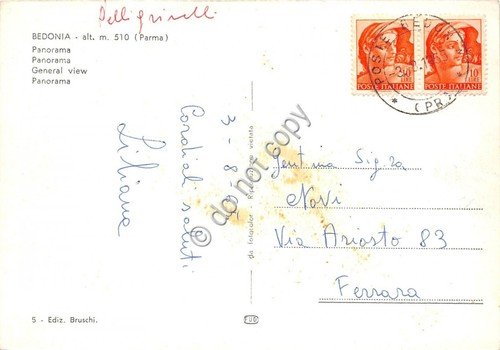 Pelligrinelli
BEDONIA - alt. m. 510 (Parma)
Panorama
Panorama
General view
Panorama
3-8-65
Cordiali saluti
Liliana
5 - Ediz. Bruschi.
da fotocolor - Riproduzione vietata
POSTE ITALIANE
POSTE ITALIANE
10
POSTE BEDONIA
(PR)
Gent.ma Sig.ra
Novi
Via Ariosto 83
Ferrara
do not copy